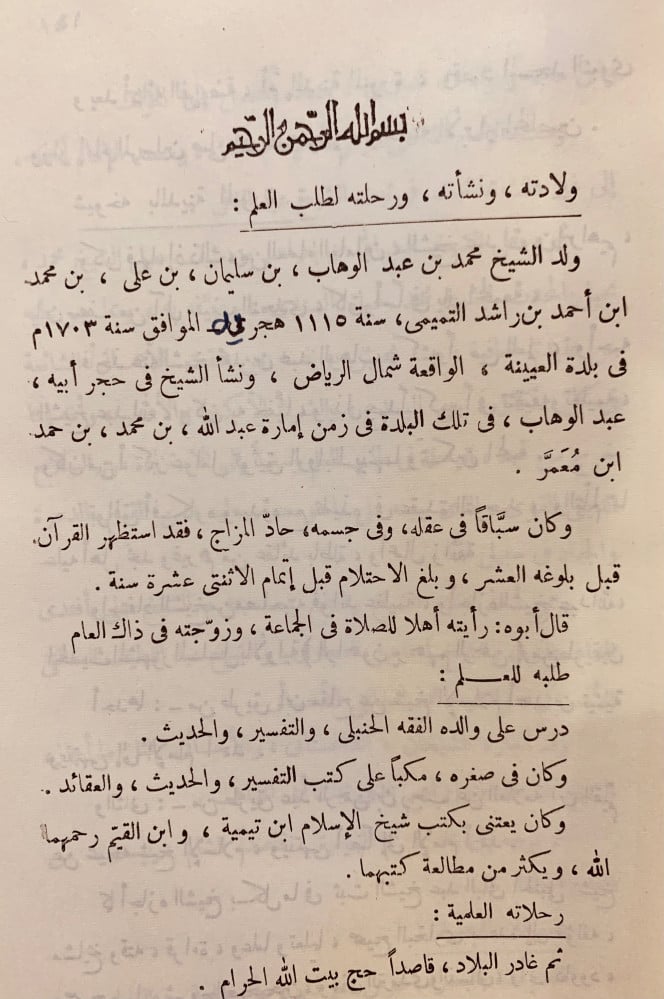 بسم الله الرحمن الرحيم
ولادته ، ونشأته ، ورحلته لطلب العلم :
ولد الشيخ محمد بن عبد الوهاب ، بن سليمان ، بن على ، بن محمد
ابن أحمد بن راشد التميمى، سنة ١١١٥ هجرى الموافق سنة ١٧٠٣م
فى بلدة العيينة ، الواقعة شمال الرياض ، ونشأ الشيخ فى حجر أبيه ،
عبد الوهاب ، فى تلك البلدة فى زمن إمارة عبد الله ، بن محمد ، بن حمد
ابن مُعَمَّرَ .
وكان سبَّاقاً فى عقله، وفى جسمه، حادّ المزاج ، فقد استظهر القرآن
قبل بلوغه العشر ، وبلغ الاحتلام قبل إتمام الاثنتى عشرة سنة .
قال أبوه: رأيته أهلا للصلاة فى الجماعة ، وزوّجته فى ذاك العام
طلبه للعـــلم :
درس على والده الفقه الحنبلى ، والتفسير ، والحديث .
وكان فى صغره ، مكباً على كتب التفسير ، والحديث ، والعقائد .
وكان يعتنى بكتب شيخ الإسلام ابن تيمية ، وابن القيّم رحمهما
الله ، ويكثر من مطالعة كتبهما .
رحلاته العلمية :
ثم غادر البلاد ، قاصداً حج بيت الله الحرام .